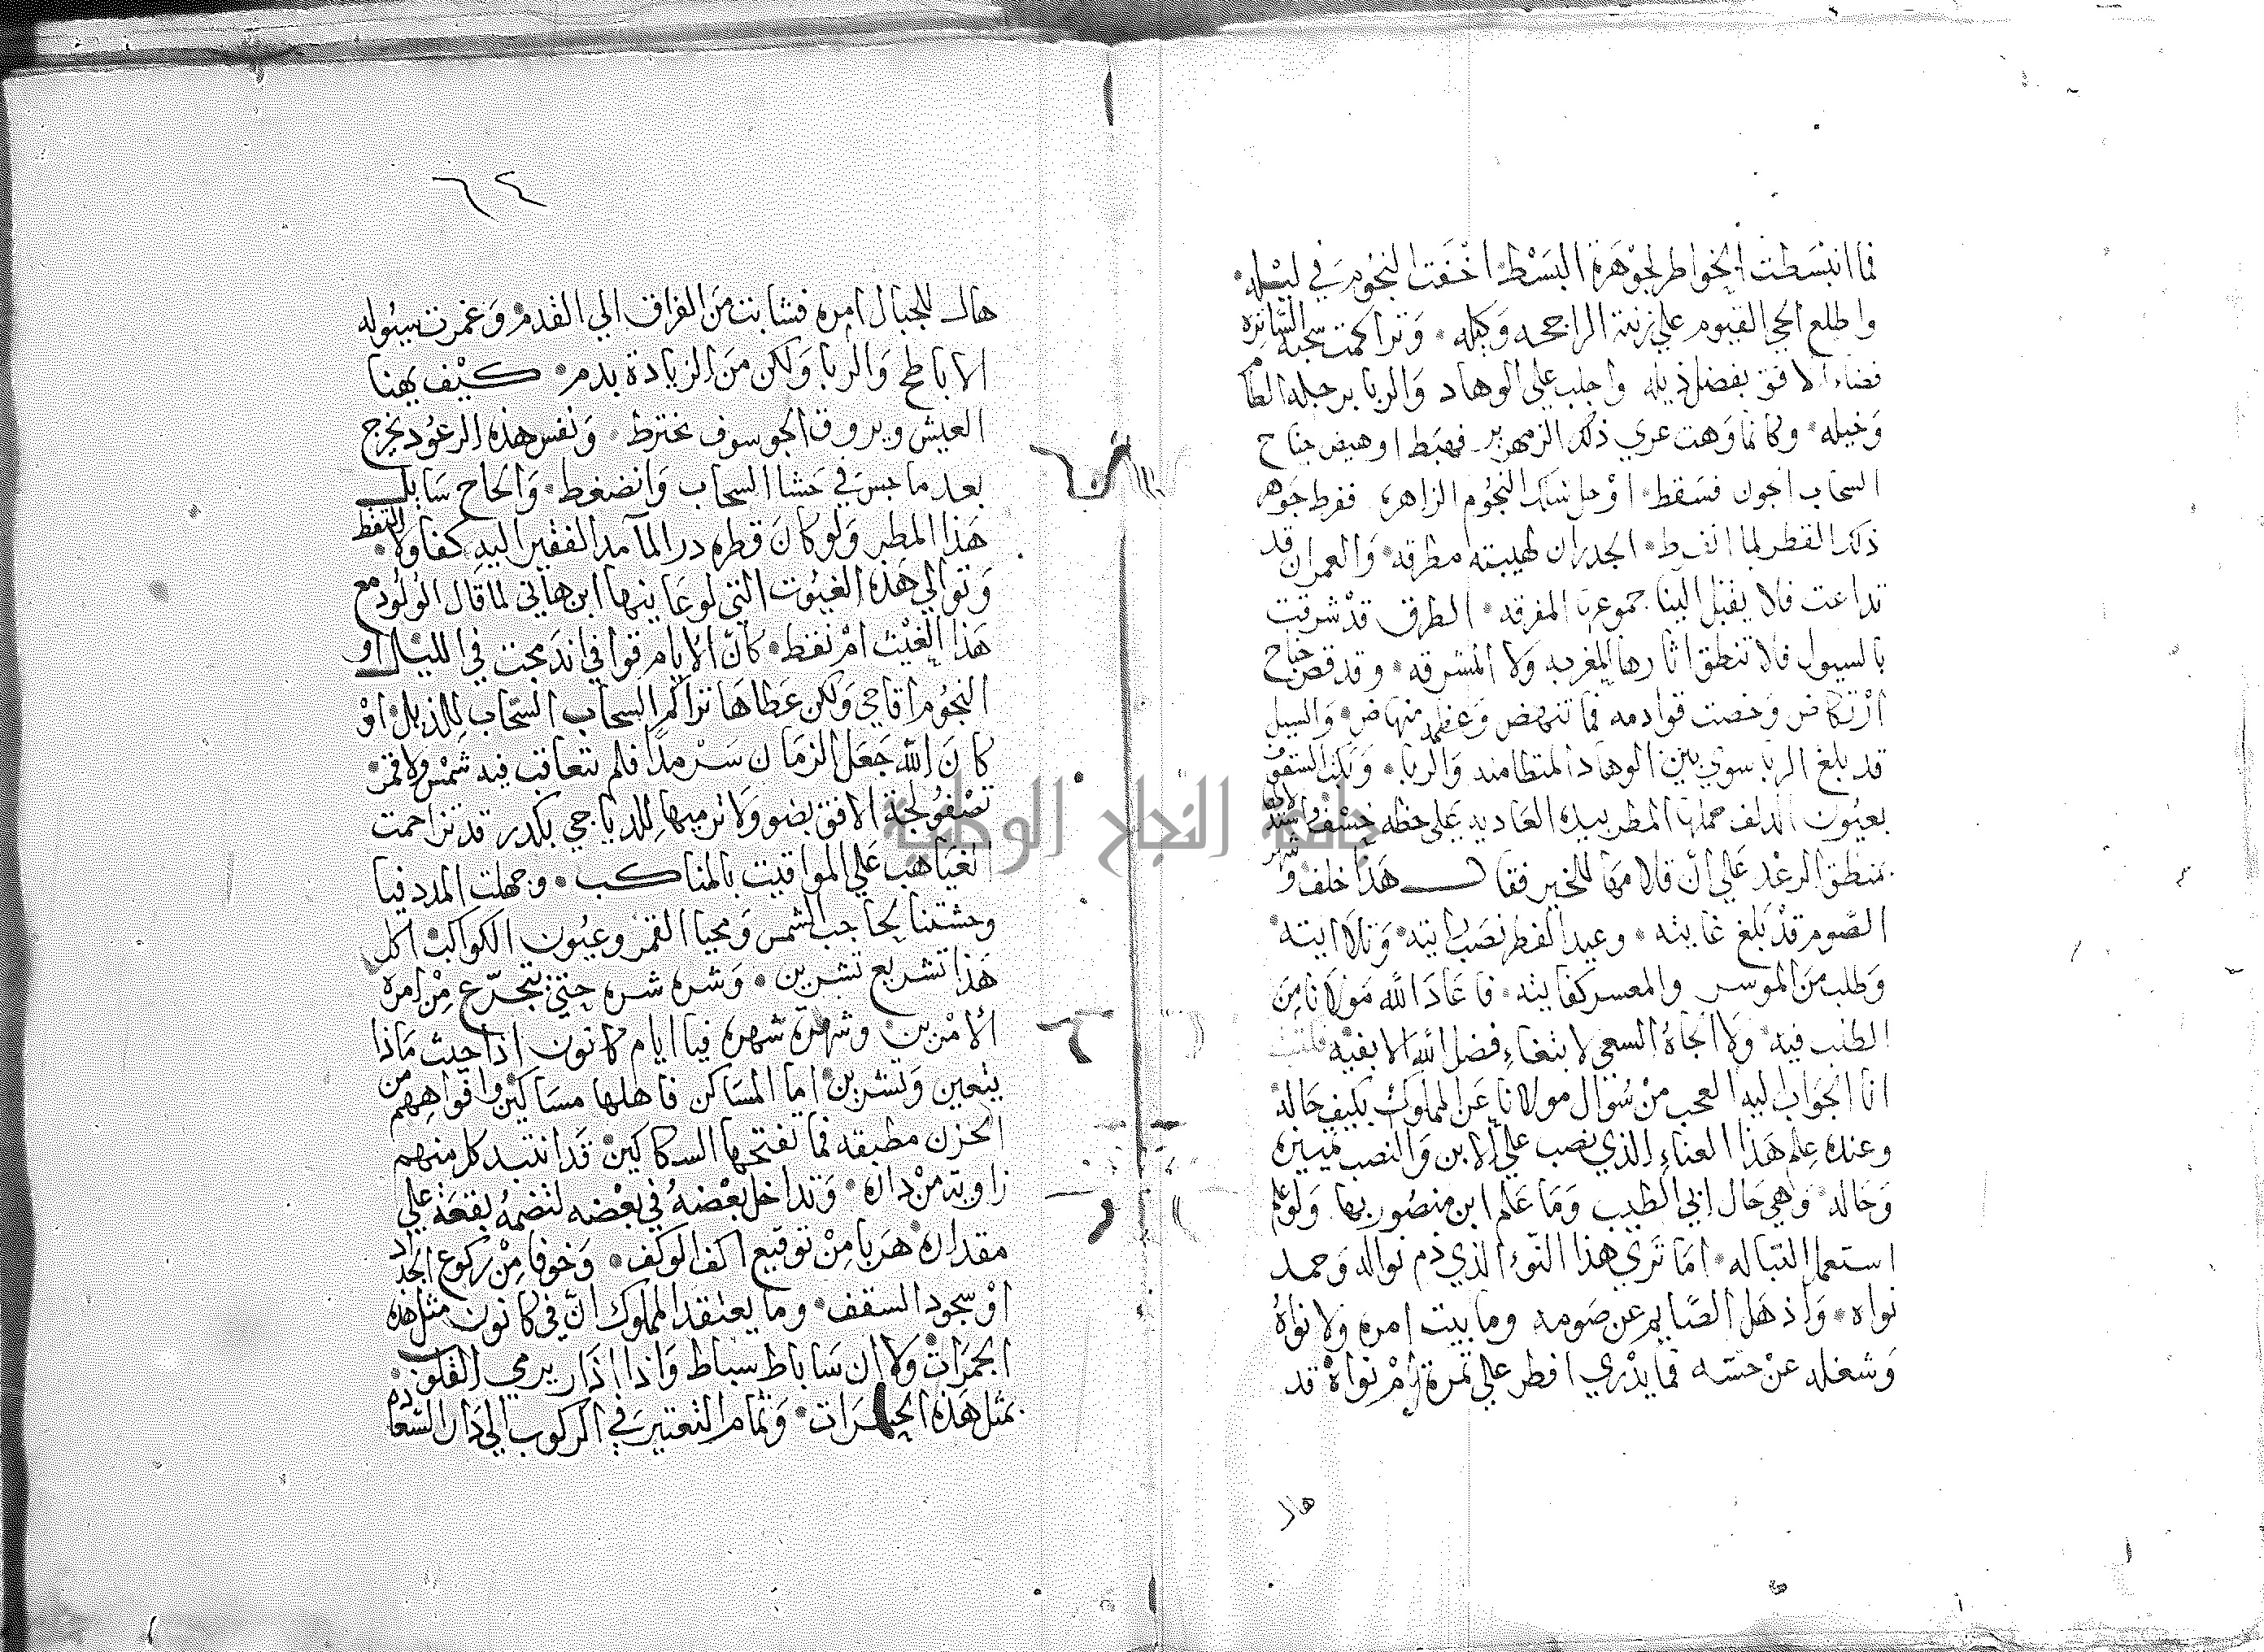 فما انبسطت الخواطر لجوهرة البسط اخفت النجوم في ليله
واطلع الحي القيوم علي زنة الراجحه وكيله وتراكمت سحبه الساتره
فضاء الافق بفضل ذيله واجلب علي الوهاد والربا برجله الطام
وخيله وكانما وهت عري ذلك الزمهرير فهبط او هيض جناح
السحاب الجون فسقط او حل سلك النجوم الزاهرة ففرط جوهر
ذلك القطر لما انفرط الجدران لهيبته مطرقه والعمران قد
تداعت فلا يقبل الينا جموعها المفرقه الطرق قد شرقت
بالسيول فلا تنطق اثارها المغربه ولا المشرقه وقد قص جناح
الارتكاض وحصت قوادمه فما تنهض وعظمه منهاض والسيل
قد بلغ الربا سوي بين الوهاد المتطامنه والربا السقف
بعيون الدلف حملها المطر بيده العاديه علي خطه خسف
بمنطق الرعد علي ان قال امها للخير فقال هذا خلف وشهر
الصوم قد بلغ غايته وعيد الفطر نصب رايته وتلا ايته
وطلب من الموسر والمعسر كفايته فاعاذ الله مولانا من
الطلب فيه ولا الجاه السعي لابتغاء فضل الله الا بفيه
انا الجواب ليه العجب من سوال مولانا عن المملوك بكيف حاله
وعنده علم هذا العناء الذي نصب علي الابن والنصب تمييزه
وحاله وهي حال ابي الطيب وما علم ابن منصور بها ولو علم
استعمل النباله اما تري هذا النوء الذي ذم نواله وحمد
نواه واذهل الصايم عن صومه وما بيت امره ولا نواه
وشغله عن حسه فما يدري افطر علي تمرة ام نواه قد
هال
٦٢
هال للجبال امره فشابت من الفراق الي القدم وغمرت سيوله
الاباطح والربا ولكن من الزيادة بدم كيف يهنا
العيش وبروق الجو سوف تخترط ونفس هذه الرعود يخرج
بعد ما حبس في حشا السحاب وانضغط والحاح سايل
هذا المطر ولو كان قطره در الما مد الفقير اليه كفا ولا التقط
وتوالي هذه الغيوث التي لو عاينها ابن هاني لما قال الولود مع
هذا الغيث ام نقط كان الايام قوافي اندمجت في الليال او
النجوم اقاحي ولكن غطاها تراكم السحاب السحاب للذبل او
كان الله جعل الزمان سرمدا فلم تتعاقب فيه شمس ولا قمر
تصفو لجة الافق بضو ولا ترميها للدياجي بكدر قد تزاحمت
الغياهب علي المواقيت بالمناكب وجهلت المدد فيا
وحشتنا لحاجب الشمس ومحيا القمر وعيون الكواكب اكل
هذا تشريع تشرين وشره شره حتي نتجرع من امره
الامرين وشهرة شهره فيا ايام كانون اذا جيت ماذا
يتعين وتشرين اما المساكن فاهلها مساكين وافواههم من
الحزن مطبقه فما تفتحها السكاكين قد انتبد كل منهم
زاوية من داره وتداخل بعضه في بعضه لتضمه بقعة علي
مقداره هربا من توقيع اكف الوكف وخوفا من ركوع الجدار
او سجود السقف وما يعتقد المملوك ان في كانون مثل هذه
الجمرات ولا ان ساباط سباط واذا اذار يرمي القلوب
بمثل هذه وتمام التعتير في الركوب الي دار السعاده
جامعة النجاح الوطنية